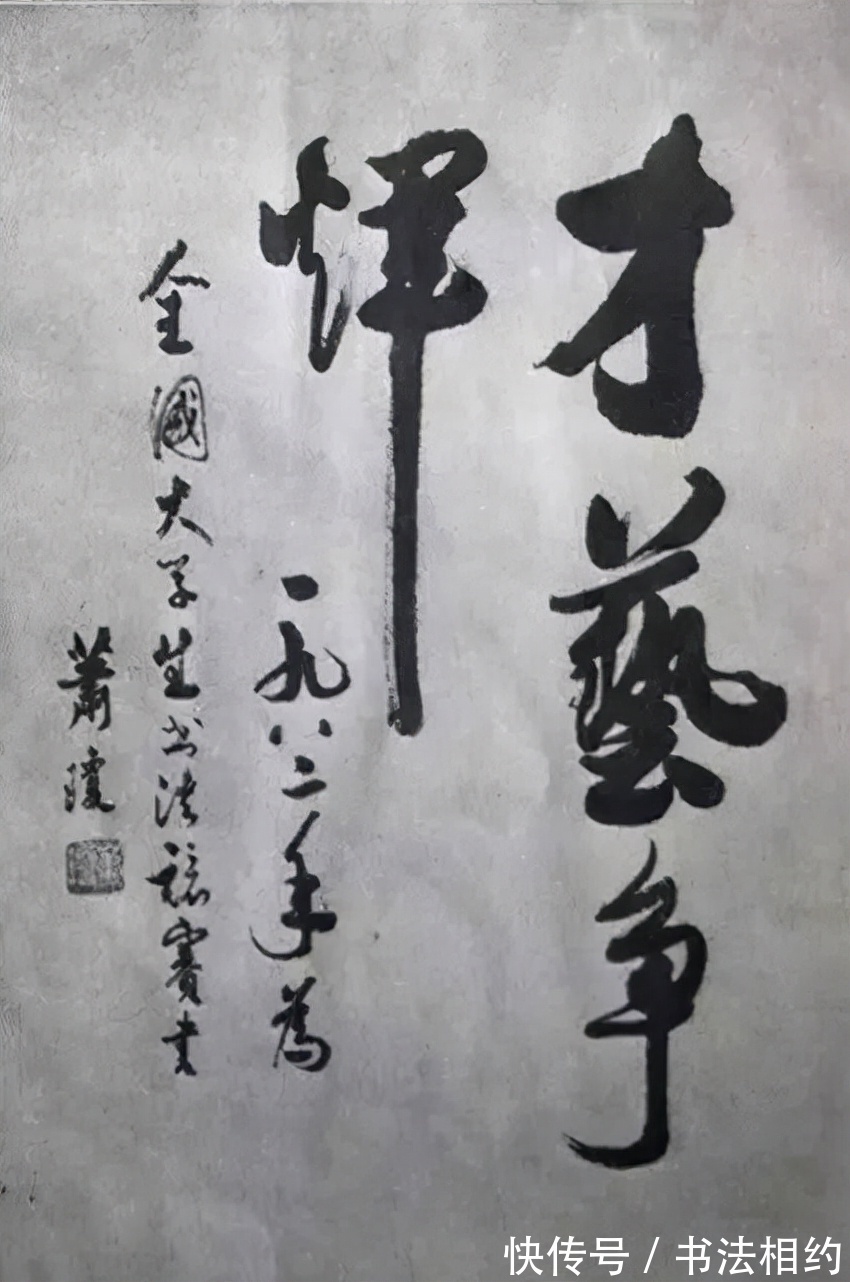 才藝争
輝
一九八二年為
全國大学生书法競賽书
蕭瓊
快传号/书法相约